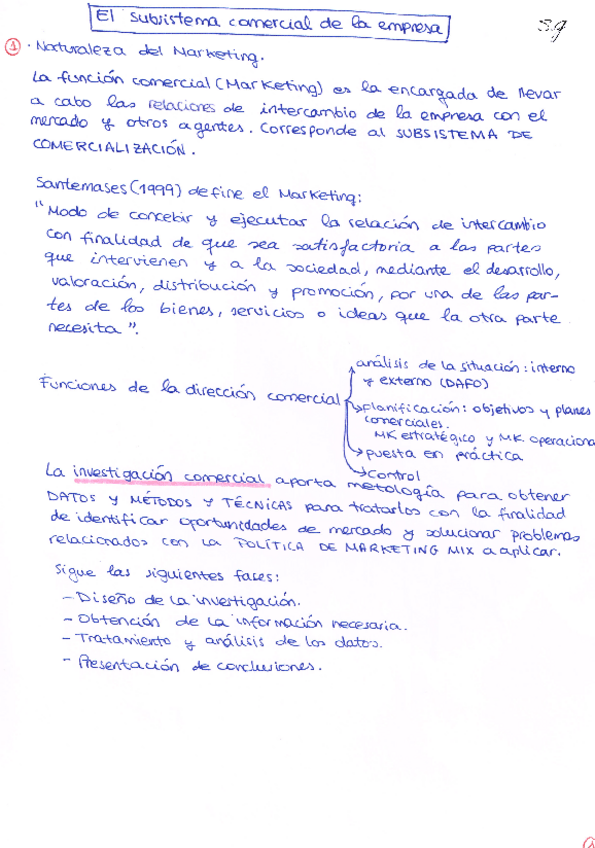 El subsistema comercial de la empresa
1. Naturaleza del Marketing.
La función comercial (Marketing) es la encargada de llevar
a cabo las relaciones de intercambio de la empresa con el
mercado y otros agentes. Corresponde al SUBSISTEMA DE
COMERCIALIZACIÓN.
Santemases (1999) define el Marketing:
"Modo de concebir y ejecutar la relación de intercambio
con finalidad de que sea satisfactoria a las partes
que intervienen y a la sociedad, mediante el desarrollo,
valoración, distribución y promoción, por una de las par-
tes de los bienes, servicios o ideas que la otra parte
necesita".
Funciones de la dirección comercial
análisis de la situación: interno
y externo (DAFO)
planificación: objetivos y planes
comerciales.
MK estratégico y MK. operaciona
puesta en práctica
control
La investigación comercial aporta metología para obtener
DATOS y MÉTODOS Y TÉCNICAS para tratarlos con la finalidad
de identificar oportunidades de mercado y solucionar problemas
relacionados con LA POLÍTICA DE MARKETING MIX a aplicar.
Sigue las siguientes fases:
- Diseño de la investigación.
- Obtención de la información necesaria.
- Tratamiento y análisis de los datos.
- Presentación de conclusiones.